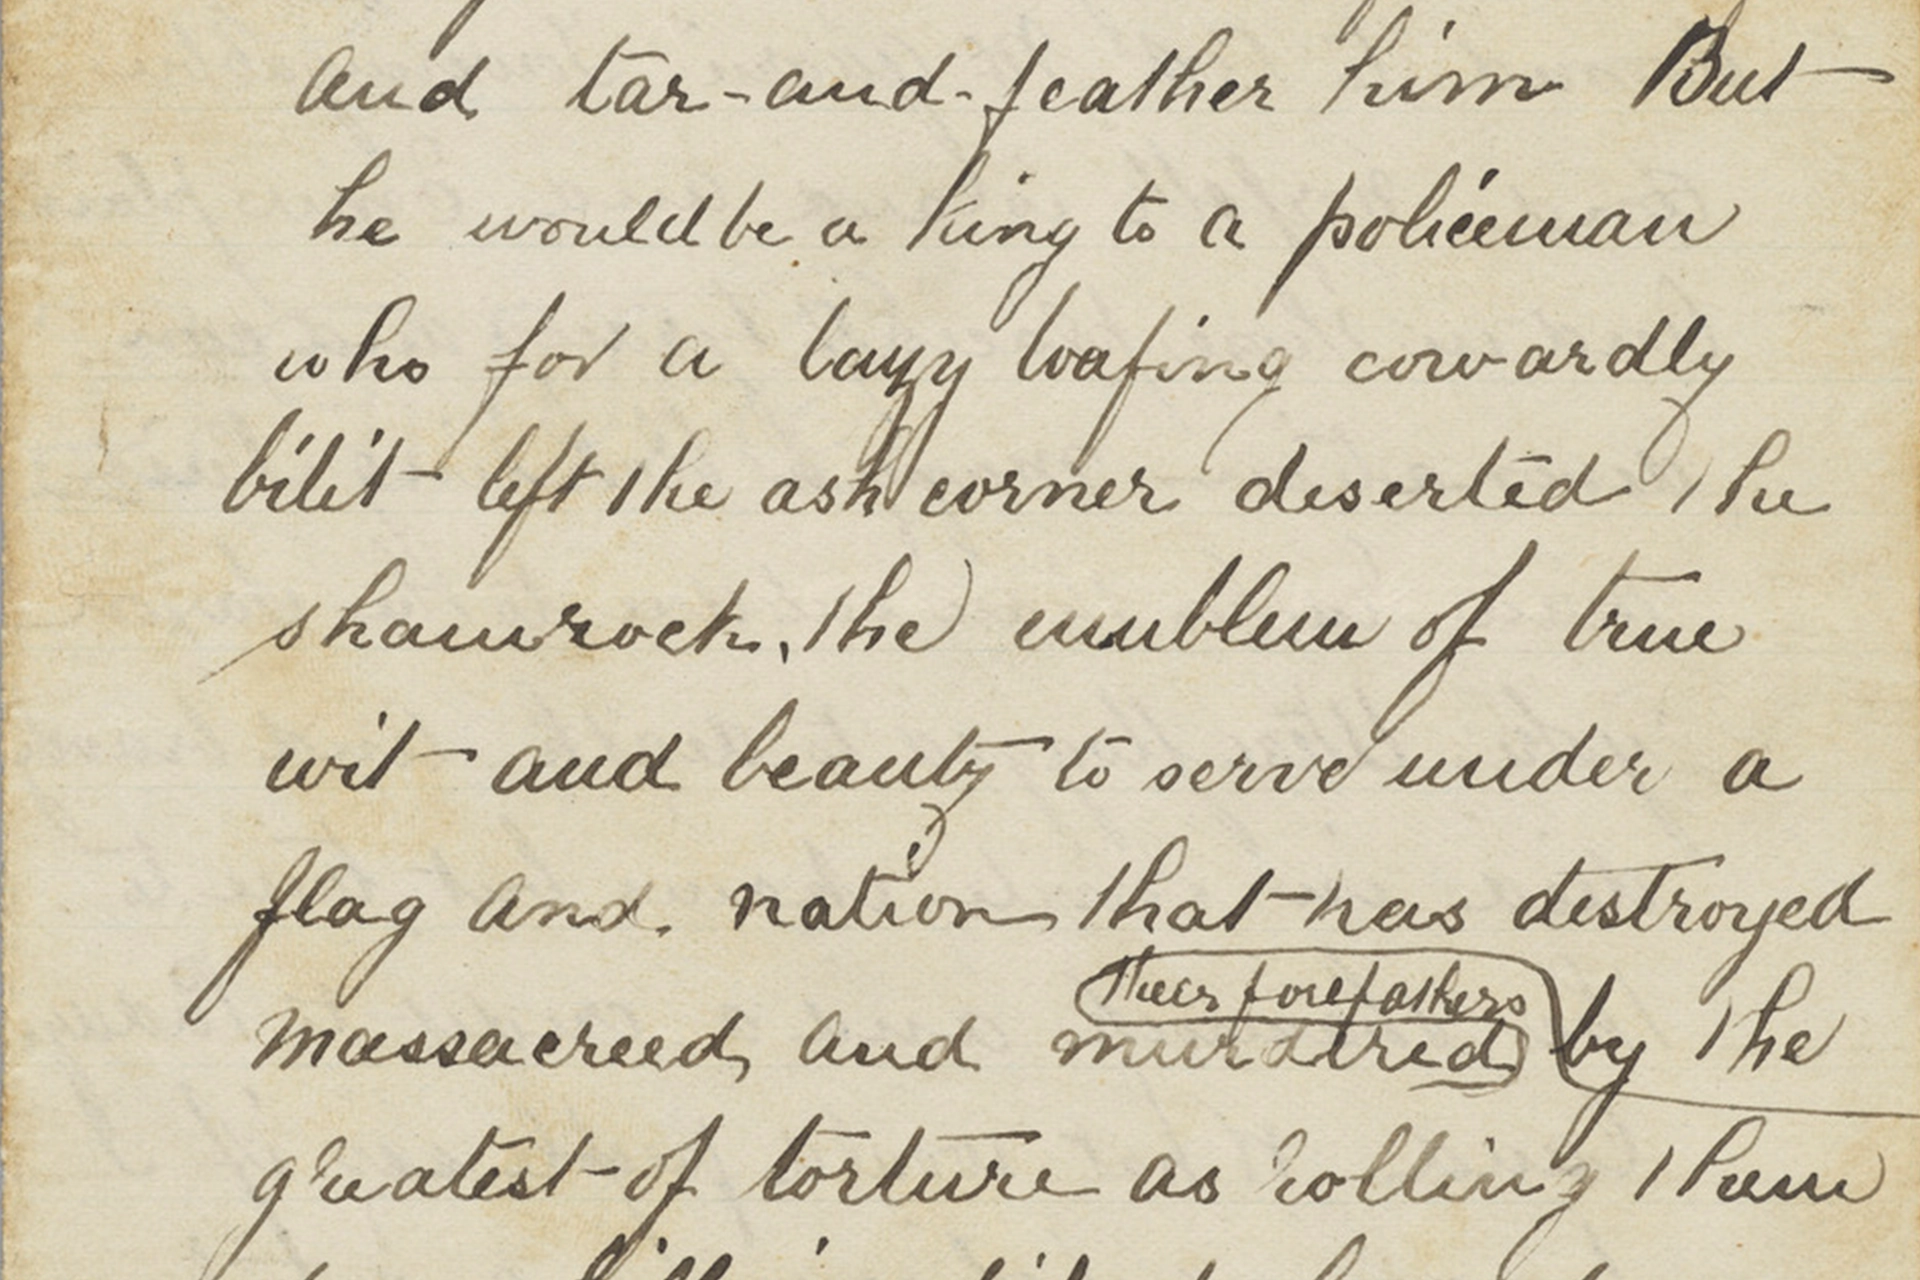 and tar-and-feather him But
he would be a king to a policeman
who for a lazy loafing cowardly
bilit left the ash corner deserted the
shamrock, the emblem of true
wit and beauty to serve under a
flag and nation that has destroyed
their forefathers
massacreed and murdered by the
greatest of torture as rolling them